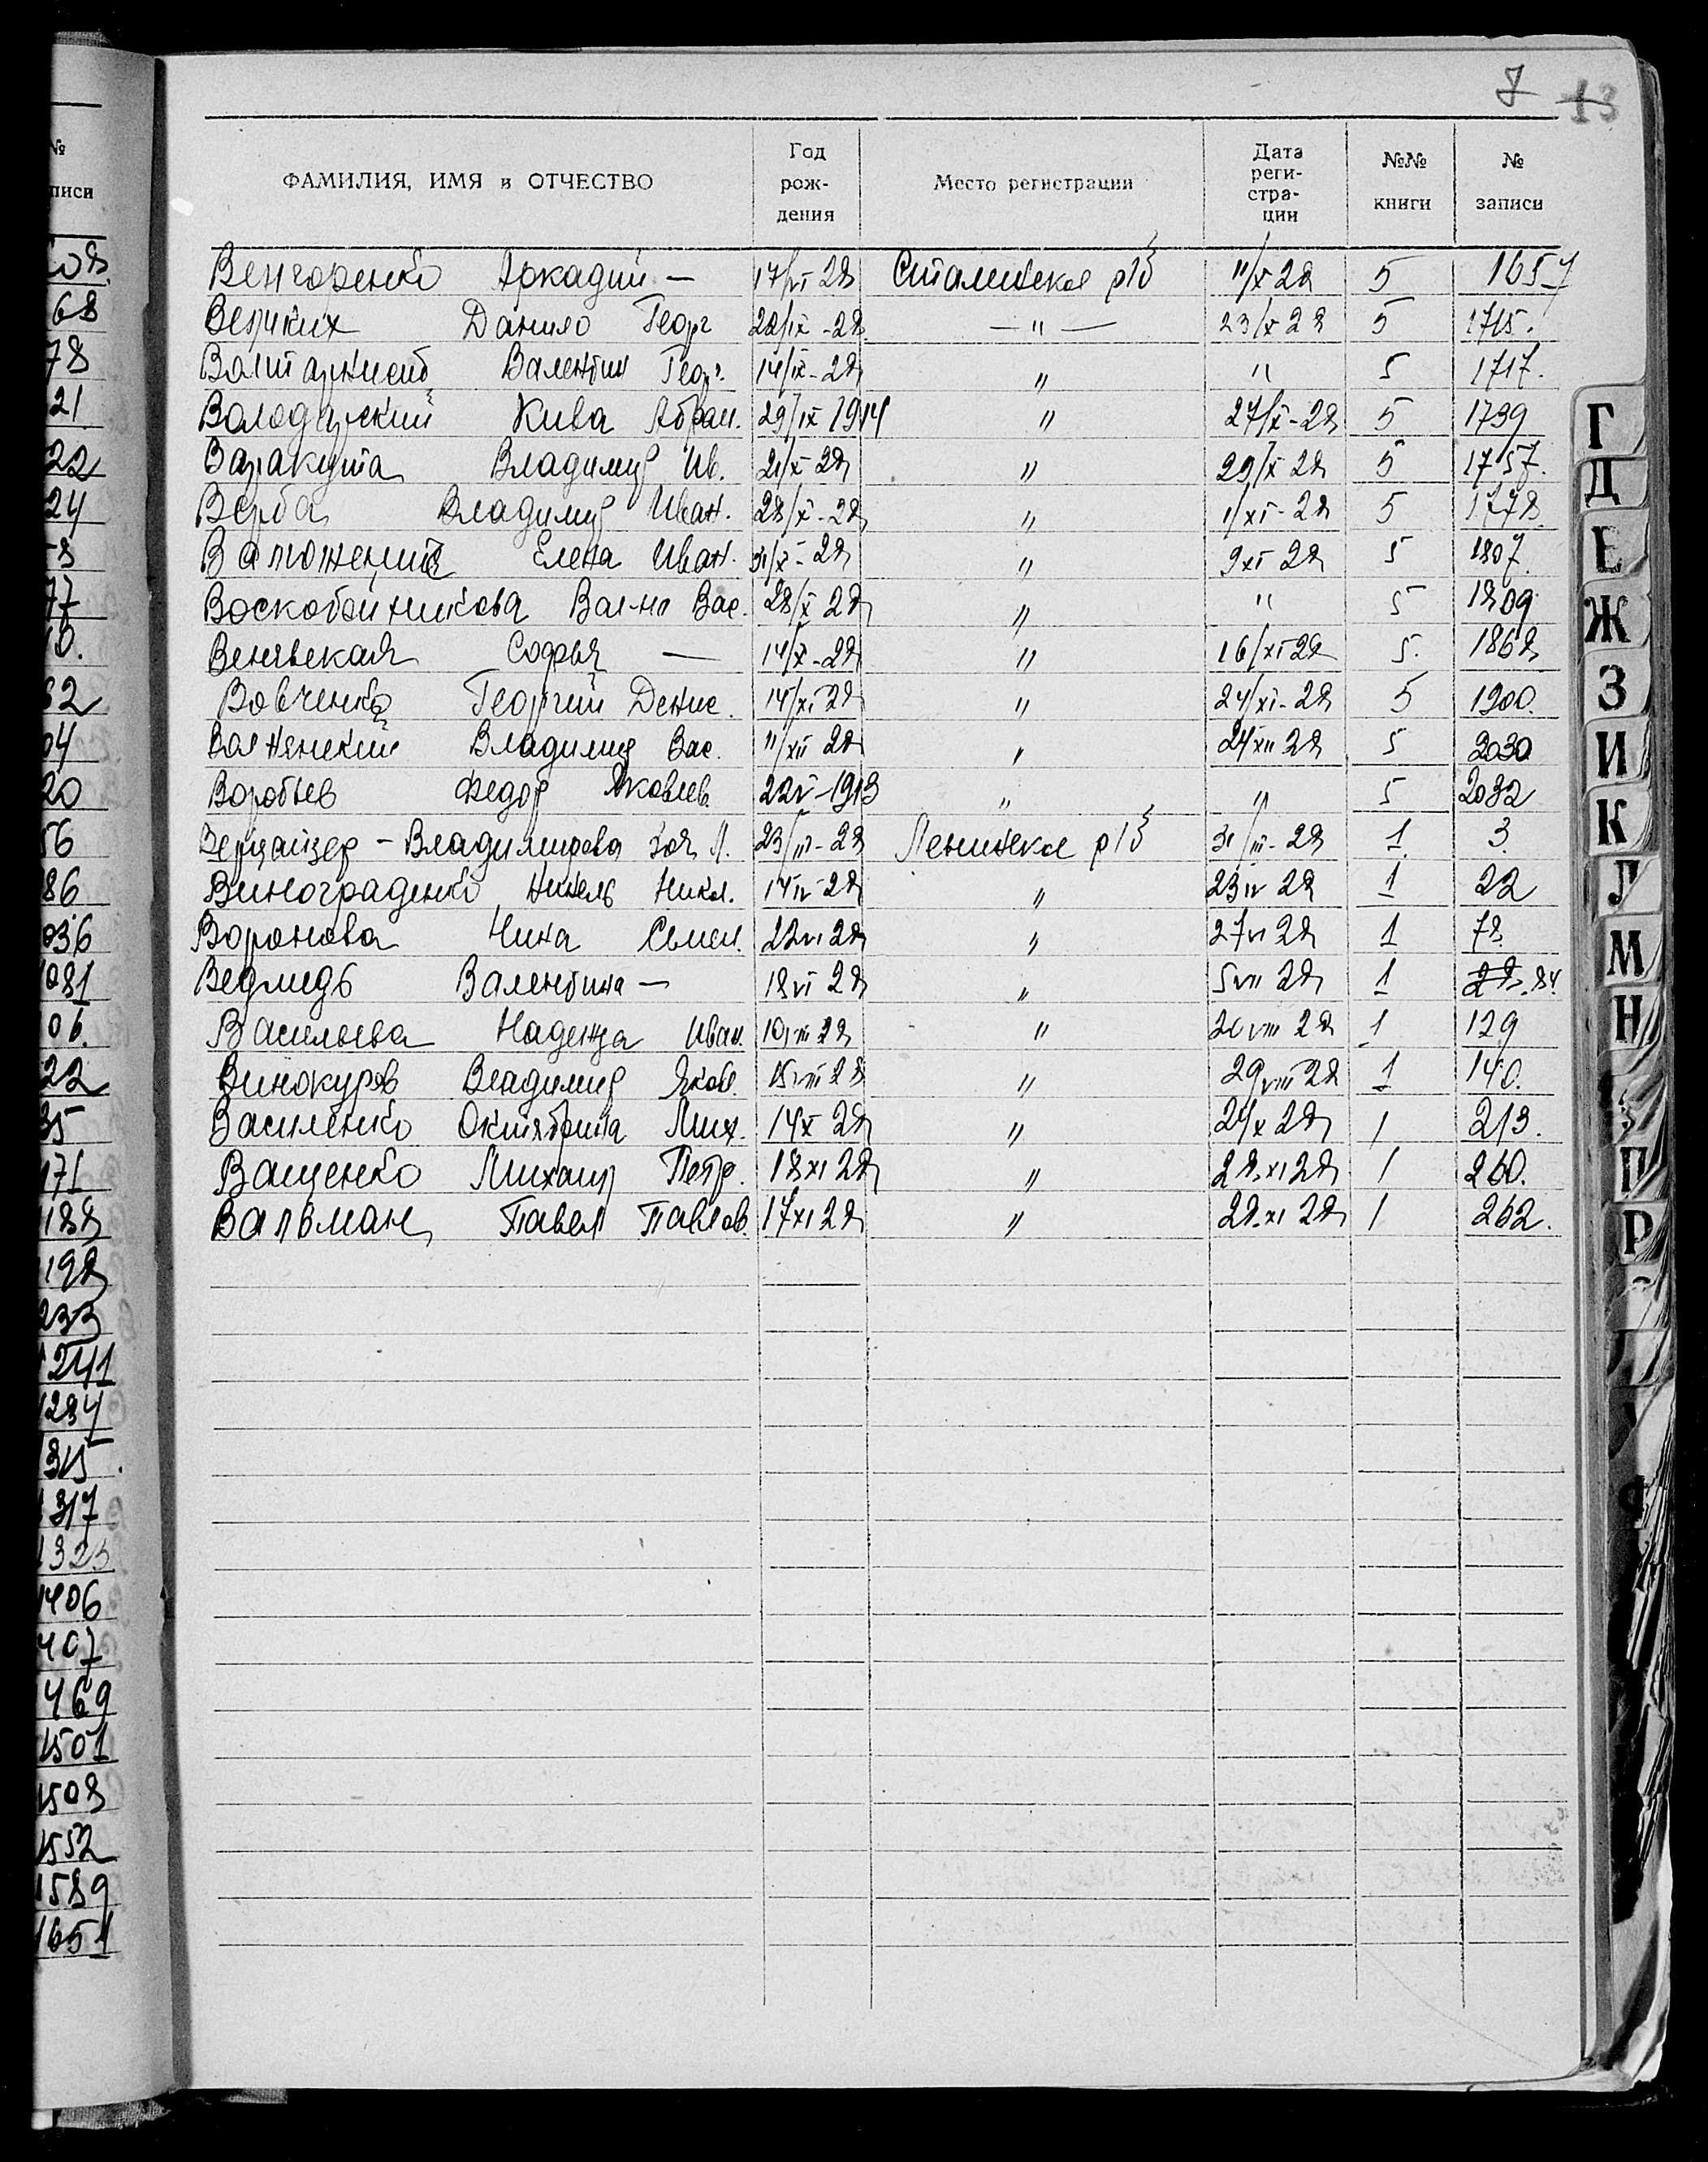 7 13
ФАМИЛИЯ, ИМЯ и ОТЧЕСТВО Год рождения Место регистрации Дата регистрации №№ книги № записи
Венгоренко Аркадий — 17/VI 28 Сталинское р/б 11/X 28 5 1657
Великих Данило Георг 22/IX-28 — " — 23/X 28 5 1715.
Валентин Геор. 14/IX-28 " " 5 1717.
Володарский Кива Абрам. 29/IX 1914 " 27/X-28 5 1739
Варакута Владимир Ив. 21/X 28 " 29/X 28 5 1757.
Верба Владимир Иван. 28/X-28 " 1/XI-28 5 1778
Елена Иван. 31/X-28 " 9 XI 28 5 1807.
Воскобойникова Вал-на Вас. 28/X 28 " " 5 1809
Венявская Софья — 14/X-28 " 16/XI 28 5. 1868
Вовченко Георгий Денис. 14/XI 28 " 24/XI-28 5 1900.
Волнянский Владимир Вас. 11/XII 28 " 24 XII 28 5 2030
Воробьев Федор Яковлев. 22 V-1913 " " 5 2032
Верцайзер - Владимирова Зоя Л. 23/III-28 Ленинское р/б 31/III-28 1 3
Винограденко Нинель Никол. 14 IV 28 " 23 IV 28 1 22
Воронова Нина Семен. 22 VI 28 " 27 VI 28 1 78
Ведмедь Валентина — 18 VI 28 " 5 VII 28 1 84.
Васильева Надежда Иван. 10 VIII 28 " 20 VIII 28 1 129
Винокуров Владимир Яков. 15 VIII 28 " 29 VIII 28 1 140.
Василенко Октябрина Мих. 14 X 28 " 24 X 28 1 213.
Ващенко Михаил Петр. 18 XI 28 " 28 XI 28 1 260.
Вальман Павел Павлов. 17 XI 28 " 28 XI 28 1 262.
№
писи
68
78
21
22
24
77
62
04
20
56
86
036
081
06.
22
35
171
188
198
233
1241
1284
1315.
1317
1323
1406
407
469
1501
1508
1552
1589
1651
Г
Д
Е
Ж
З
И
К
Л
М
Н
П
Р